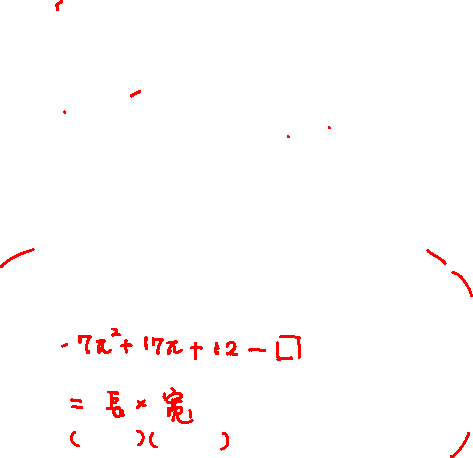 7x²+17x+12-□
= 長×寬
(    )(    )